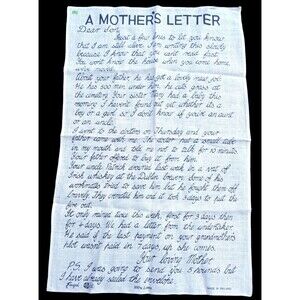 A MOTHER'S LETTER
Dear Son,
Just a few lines to let you know
that I am still alive. I am writing this slowly
because I know that you can't read fast.
You won't know the house when you come home
we've moved.
About your father, he has got a lovely new job.
He has 500 men under him, he cuts grass at
the cemetery. Your sister Mary had a baby this
morning I haven't found out yet whether its a
boy or a girl so I don't know if your an aunt
or an uncle.
I went to the doctors on Thursday and your
father came with me. The doctor put a small tube
in my mouth and told me not to talk for 10 minutes.
Your father offered to buy it from him.
Your uncle Patrick drowned last week in a vat of
Irish whiskey at the Dublin Brewery. Some of his
workmates tried to save him but he fought them off
bravely. They cremated him and it took 3 days to put the
fire out.
It only rained twice this week, first for 3 days then
for 4 days. We had a letter from the undertaker.
He said if the last payment on your grandmothers
plot wasn't paid in 7 days, up she comes.
Your loving Mother
P.S. I was going to send you 5 pounds but I
have already sealed the envelope.